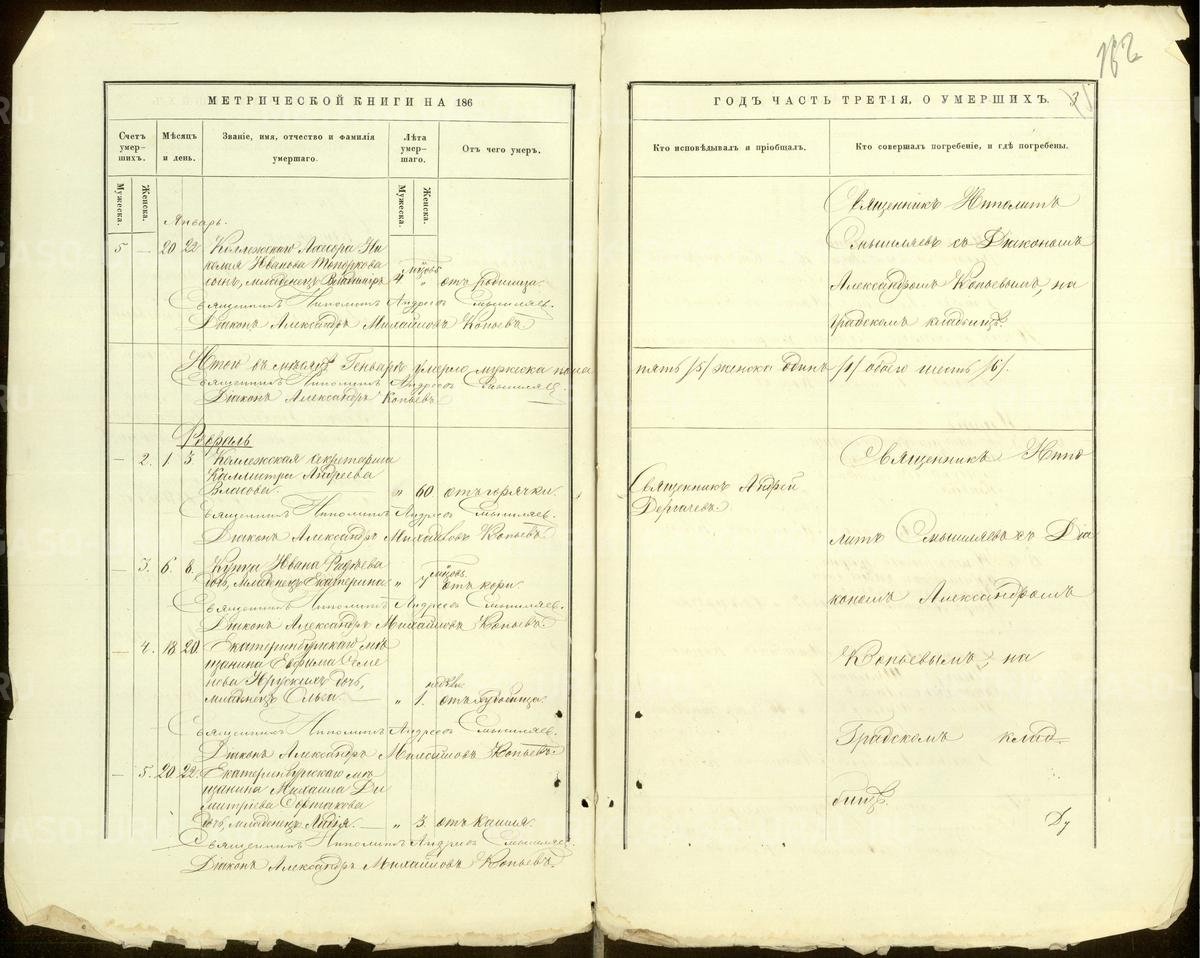 162
МЕТРИЧЕСКОЙ КНИГИ НА 186
Счетъ умер-шихъ.
Мѣсяцъ и день.
Званіе, имя, отчество и фамилія умершаго.
Лѣта умер-шаго.
Отъ чего умеръ.
Мужеска.
Женска.
Мужеска.
Женска.
Январь.
5 — 20 22 Коллежскаго Ассесора Ни
колая Иванова Топоркова
сынъ, младенецъ Владиміръ 4 отъ родимца.
Священникъ Ипполитъ Андреевъ Смышляевъ.
Діаконъ Александръ Михайловъ Копьевъ
Итого въ мѣсяцѣ Генварѣ умерло мужеска пола
Священникъ Ипполитъ Андреевъ Смышляевъ
Діаконъ Александръ Копьевъ
Февраль
— 2. 1. 3 Коллежская секретарша
Андреева
Власова. „ 60 отъ горячки.
Священникъ Ипполитъ Андреевъ Смышляевъ.
Діаконъ Александръ Михайловъ Копьевъ.
— 3. 6. 8. Купца Ивана
дочь, младенецъ Екатерина „ 7 мѣсяц. отъ кори.
Священникъ Ипполитъ Андреевъ Смышляевъ.
Діаконъ Александръ Михайловъ Копьевъ.
— 4. 18 20. Екатеринбургскаго мѣ
щанина Евфима Семе
нова дочь,
младенецъ Ольга. „ 1. недѣли отъ родимца.
Священникъ Ипполитъ Андреевъ Смышляев.
Діаконъ Александръ Михайловъ Копьевъ.
— 5. 20 22. Екатеринбургскаго мѣ
щанина Михаила Ди
митріева
дочь, младенецъ Лидія. „ 3 отъ кашля.
Священникъ Ипполитъ Андреевъ Смышляев
Діаконъ Александръ Михайловъ Копьевъ.
ГОДЪ ЧАСТЬ ТРЕТІЯ, О УМЕРШИХЪ.
Кто исповѣдывалъ и пріобщалъ.
Кто совершалъ погребеніе, и гдѣ погребены.
Священникъ Ипполитъ
Смышляевъ съ Діакономъ
Александромъ Копьевымъ, на
градскомъ кладбищѣ.
пять /5/ женска одинъ /1/ обоего шесть /6/.
Священникъ Андрей
Дергачевъ.
Священникъ Иппо
литъ Смышляевъ съ Діа
кономъ Александромъ
Копьевымъ, на
Градскомъ клад
бищѣ.
Ду